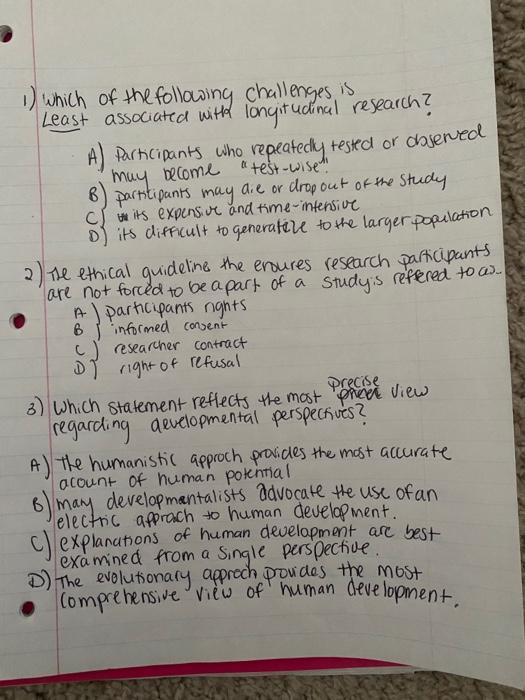 1) Which of the following challenges is
Least associated with longitudinal research?
A) Participants who repeatedly tested or observed
may become "test-wise".
B) participants may die or drop out of the study
C) its expensive and time-intensive
D) its difficult to generatize to the larger population
2) The ethical guideline the ensures research participants
are not forced to be a part of a study is reffered to as..
A) participants rights
B) informed consent
C) researcher contract
D) right of refusal
3) Which statement reflects the most precise view
regarding developmental perspectives?
A) The humanistic approch provides the most accurate
acount of human potential
B) many developmentalists advocate the use of an
electric approach to human development.
C) explanations of human development are best
examined from a single perspective.
D) The evolutionary approch provides the most
comprehensive view of human development.